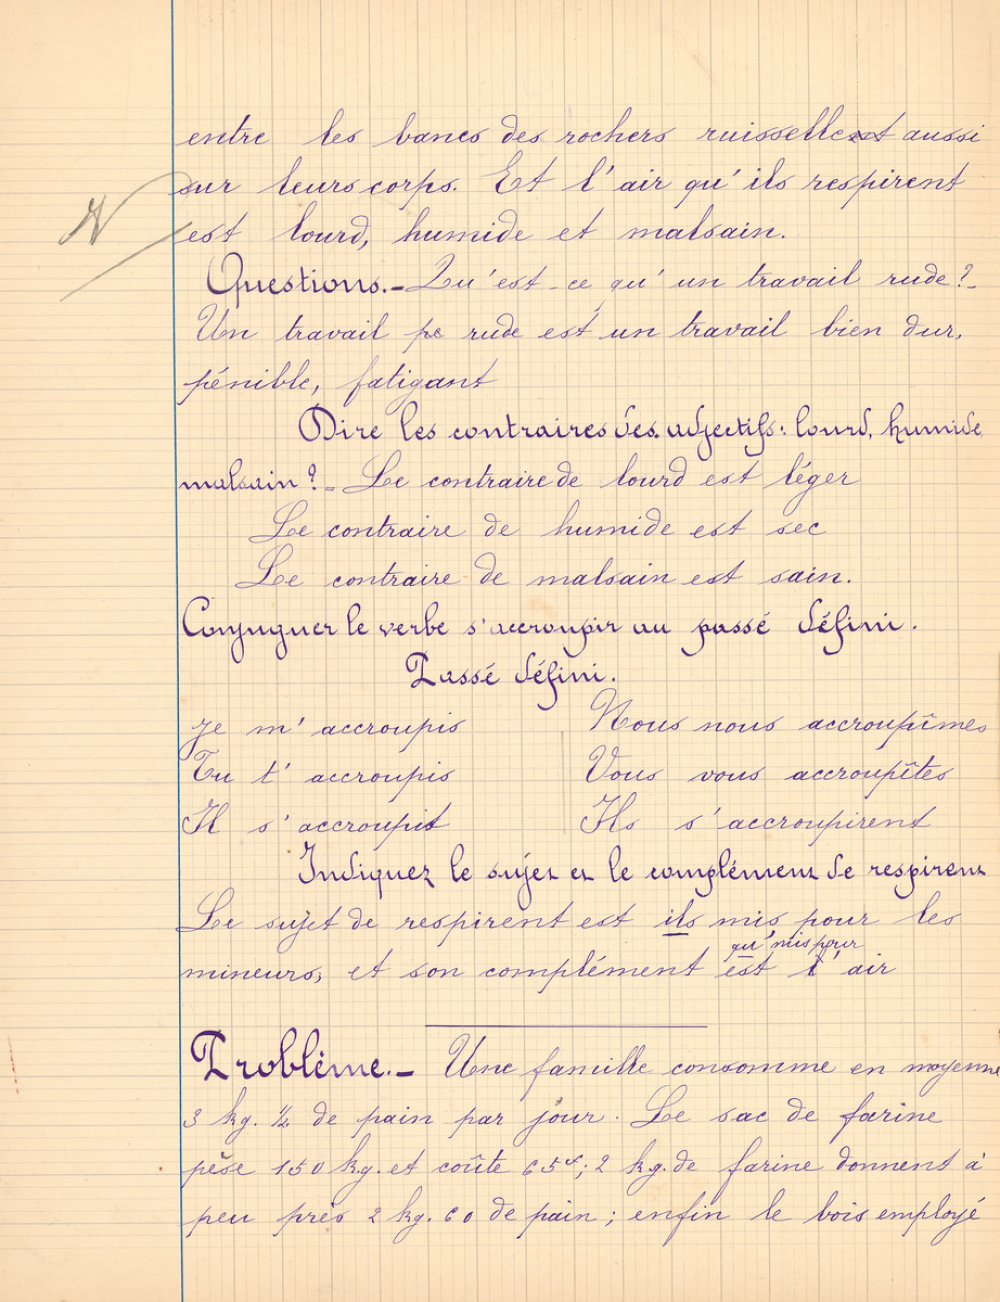 entre les bancs des rochers ruissellent aussi
sur leurs corps. Et l'air qu'ils respirent
est lourd, humide et malsain.
Questions.- Qu'est-ce qu'un travail rude?-
Un travail pe rude est un travail bien dur,
pénible, fatigant
Dire les contraires des adjectifs: lourd, humide
malsain?- Le contraire de lourd est léger
Le contraire de humide est sec
Le contraire de malsain est sain.
Conjuguer le verbe s'accroupir au passé défini.
Passé défini.
Je m'accroupis Nous nous accroupîmes
Tu t'accroupis Vous vous accroupîtes
Il s'accroupit Ils s'accroupirent
Indiquez le sujet et le complément de respirent
Le sujet de respirent est ils mis pour les
qu' mis pour
mineurs, et son complément est l'air
Problème.- Une famille consomme en moyenne
3 kg. ½ de pain par jour. Le sac de farine
pèse 150 kg. et coûte 65f; 2 kg. de farine donnent à
peu près 2 kg. 60 de pain; enfin le bois employé